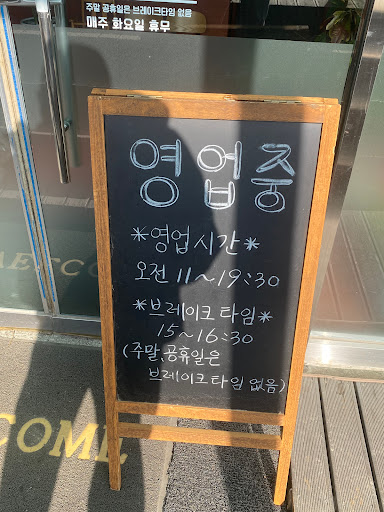 주말 공휴일은 브레이크타임 없음
매주 화요일 휴무
영업중
*영업시간*
오전 11~19:30
*브레이크타임*
15~16:30
(주말,공휴일은
브레이크타임 없음)
COME